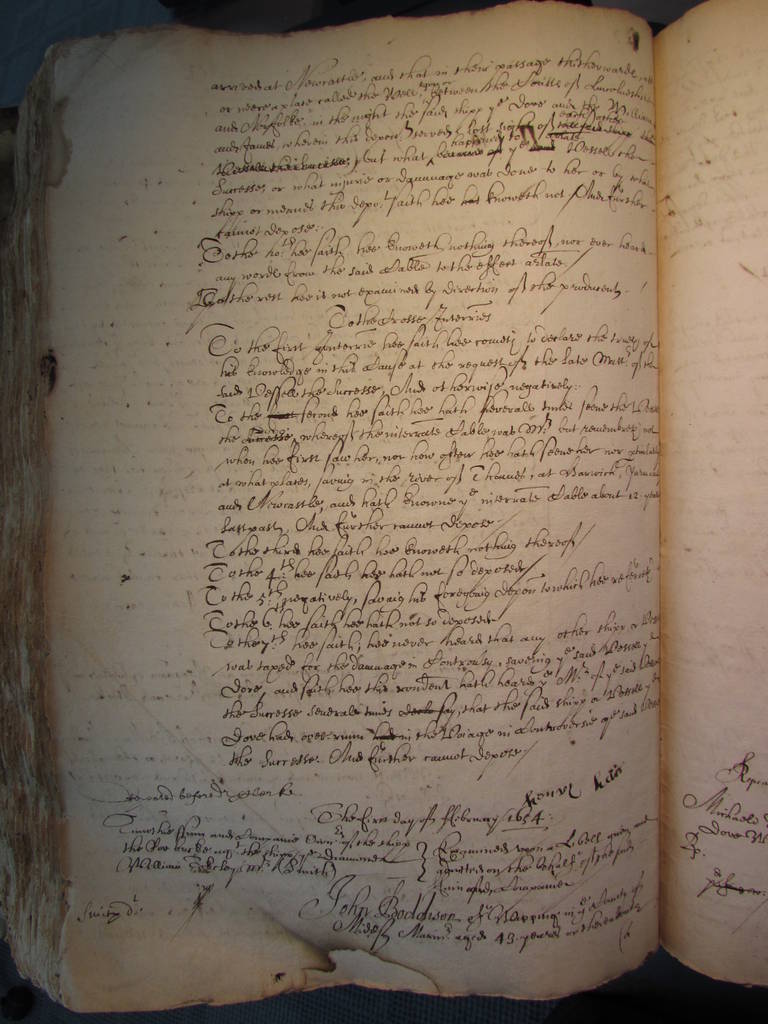 arrived at Newcastle, and that in their passage thitherwards, att
or neere a place called the Well, upon or betweene the Coasts of Lincolnshire
and Norfolke, in the night the said shipp ye Dove and the William
and James, wherein this depot served, lost sight of each other
but what happened to ye Vessell the
Successe, or what injurie or dammage was done to her or by what
shipp or meanes this depot saith hee knoweth not And further
cannot depose:
To the 10th hee saith hee knoweth nothing thereof, nor ever heard
any words from the said Cable to the effect arlate
To the rest hee is not examined by direction of the producent
To the Crosse Interries
To the first Interrie hee saith hee cometh to declare the truth of
his knowledge in this Cause at the request of the late Mastr of the
said Vessell the Successe, And otherwise negatively:
To the second hee saith hee hath severall times seene the Vessell
the Successe, whereof the interrate Cable was Mr but remembreth not
when hee first saw her, nor how often hee hath seene her nor
at what places, saving in the river of Thames, at Harwich, Yarmouth
and Newcastle, and hath knowne ye interrate Cable about 12 yeares
last past, And further cannot depose
To the third hee saith hee knoweth nothing thereof
To the 4th hee saith hee hath not so deposed
To the 5th negatively, saving his foregoing depon to which hee referreth
To the 6 hee saith hee hath not so deposed
To the 7th hee saith, hee never heard that any other shipp or Vessell
was taxed for the dammage in Controversy, saveing ye said Vessell ye
Dove, and saith hee this rondent hath heard ye Mr of ye said Vessell
the Successe severall times say, that the said shipp or Vessell ye
Dove had over runn in the Voiage in Controversie ye said Vessell
the Successe. And further cannot depose
Repeated before dr Clerke
The first day of February 1654:
and Companie Owners of the shipp
the mr the shipp ye Diamond
(William mr) Smith
Examined upon a Libell given and
admitted on the behalfe of the said
and Companie
Smith dt
John Boddison of Wapping in ye County of
Middx Marinr aged 43 yeares or thereabouts
Michaell
Dove